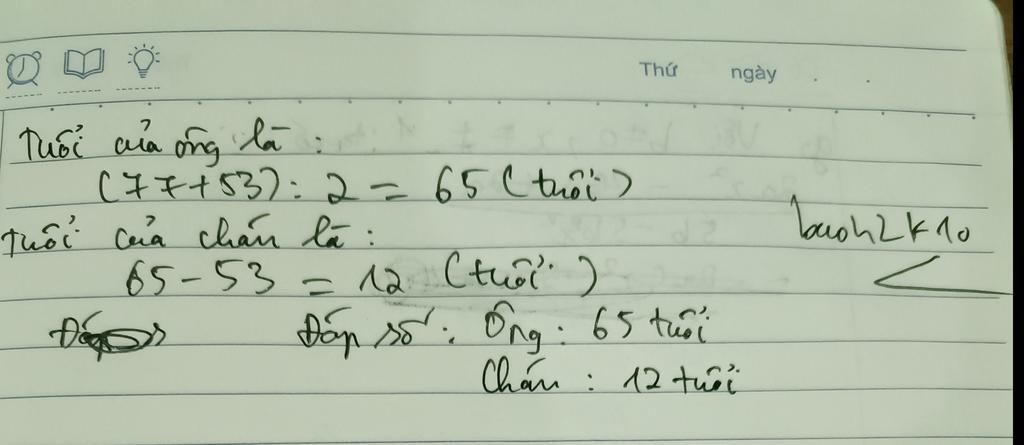 Thứ ngày . .
Tuổi của ông là :
(77+53) : 2 = 65 (tuổi)
Tuổi của cháu là :
baoh2k10
65 - 53 = 12 (tuổi)
Đáp số : Ông : 65 tuổi
Cháu : 12 tuổi